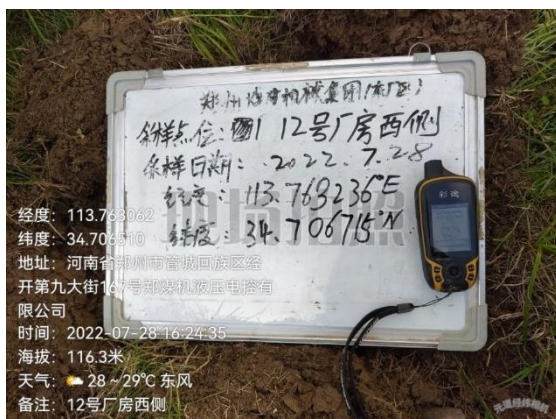 郑州煤矿机械集团(东厂区)
采样点位: 1 12号厂房西侧
采样日期: 2022.7.28
经度: 113.763236°E
纬度: 34.706715°N
彩途
现场拍照
经度: 113.763062
纬度: 34.706510
地址: 河南省郑州市管城回族区经
开第九大街167号郑煤机液压电控有
限公司
时间: 2022-07-28 16:24:35
海拔: 116.3米
天气: 28~29℃ 东风
备注: 12号厂房西侧
元道经纬相机